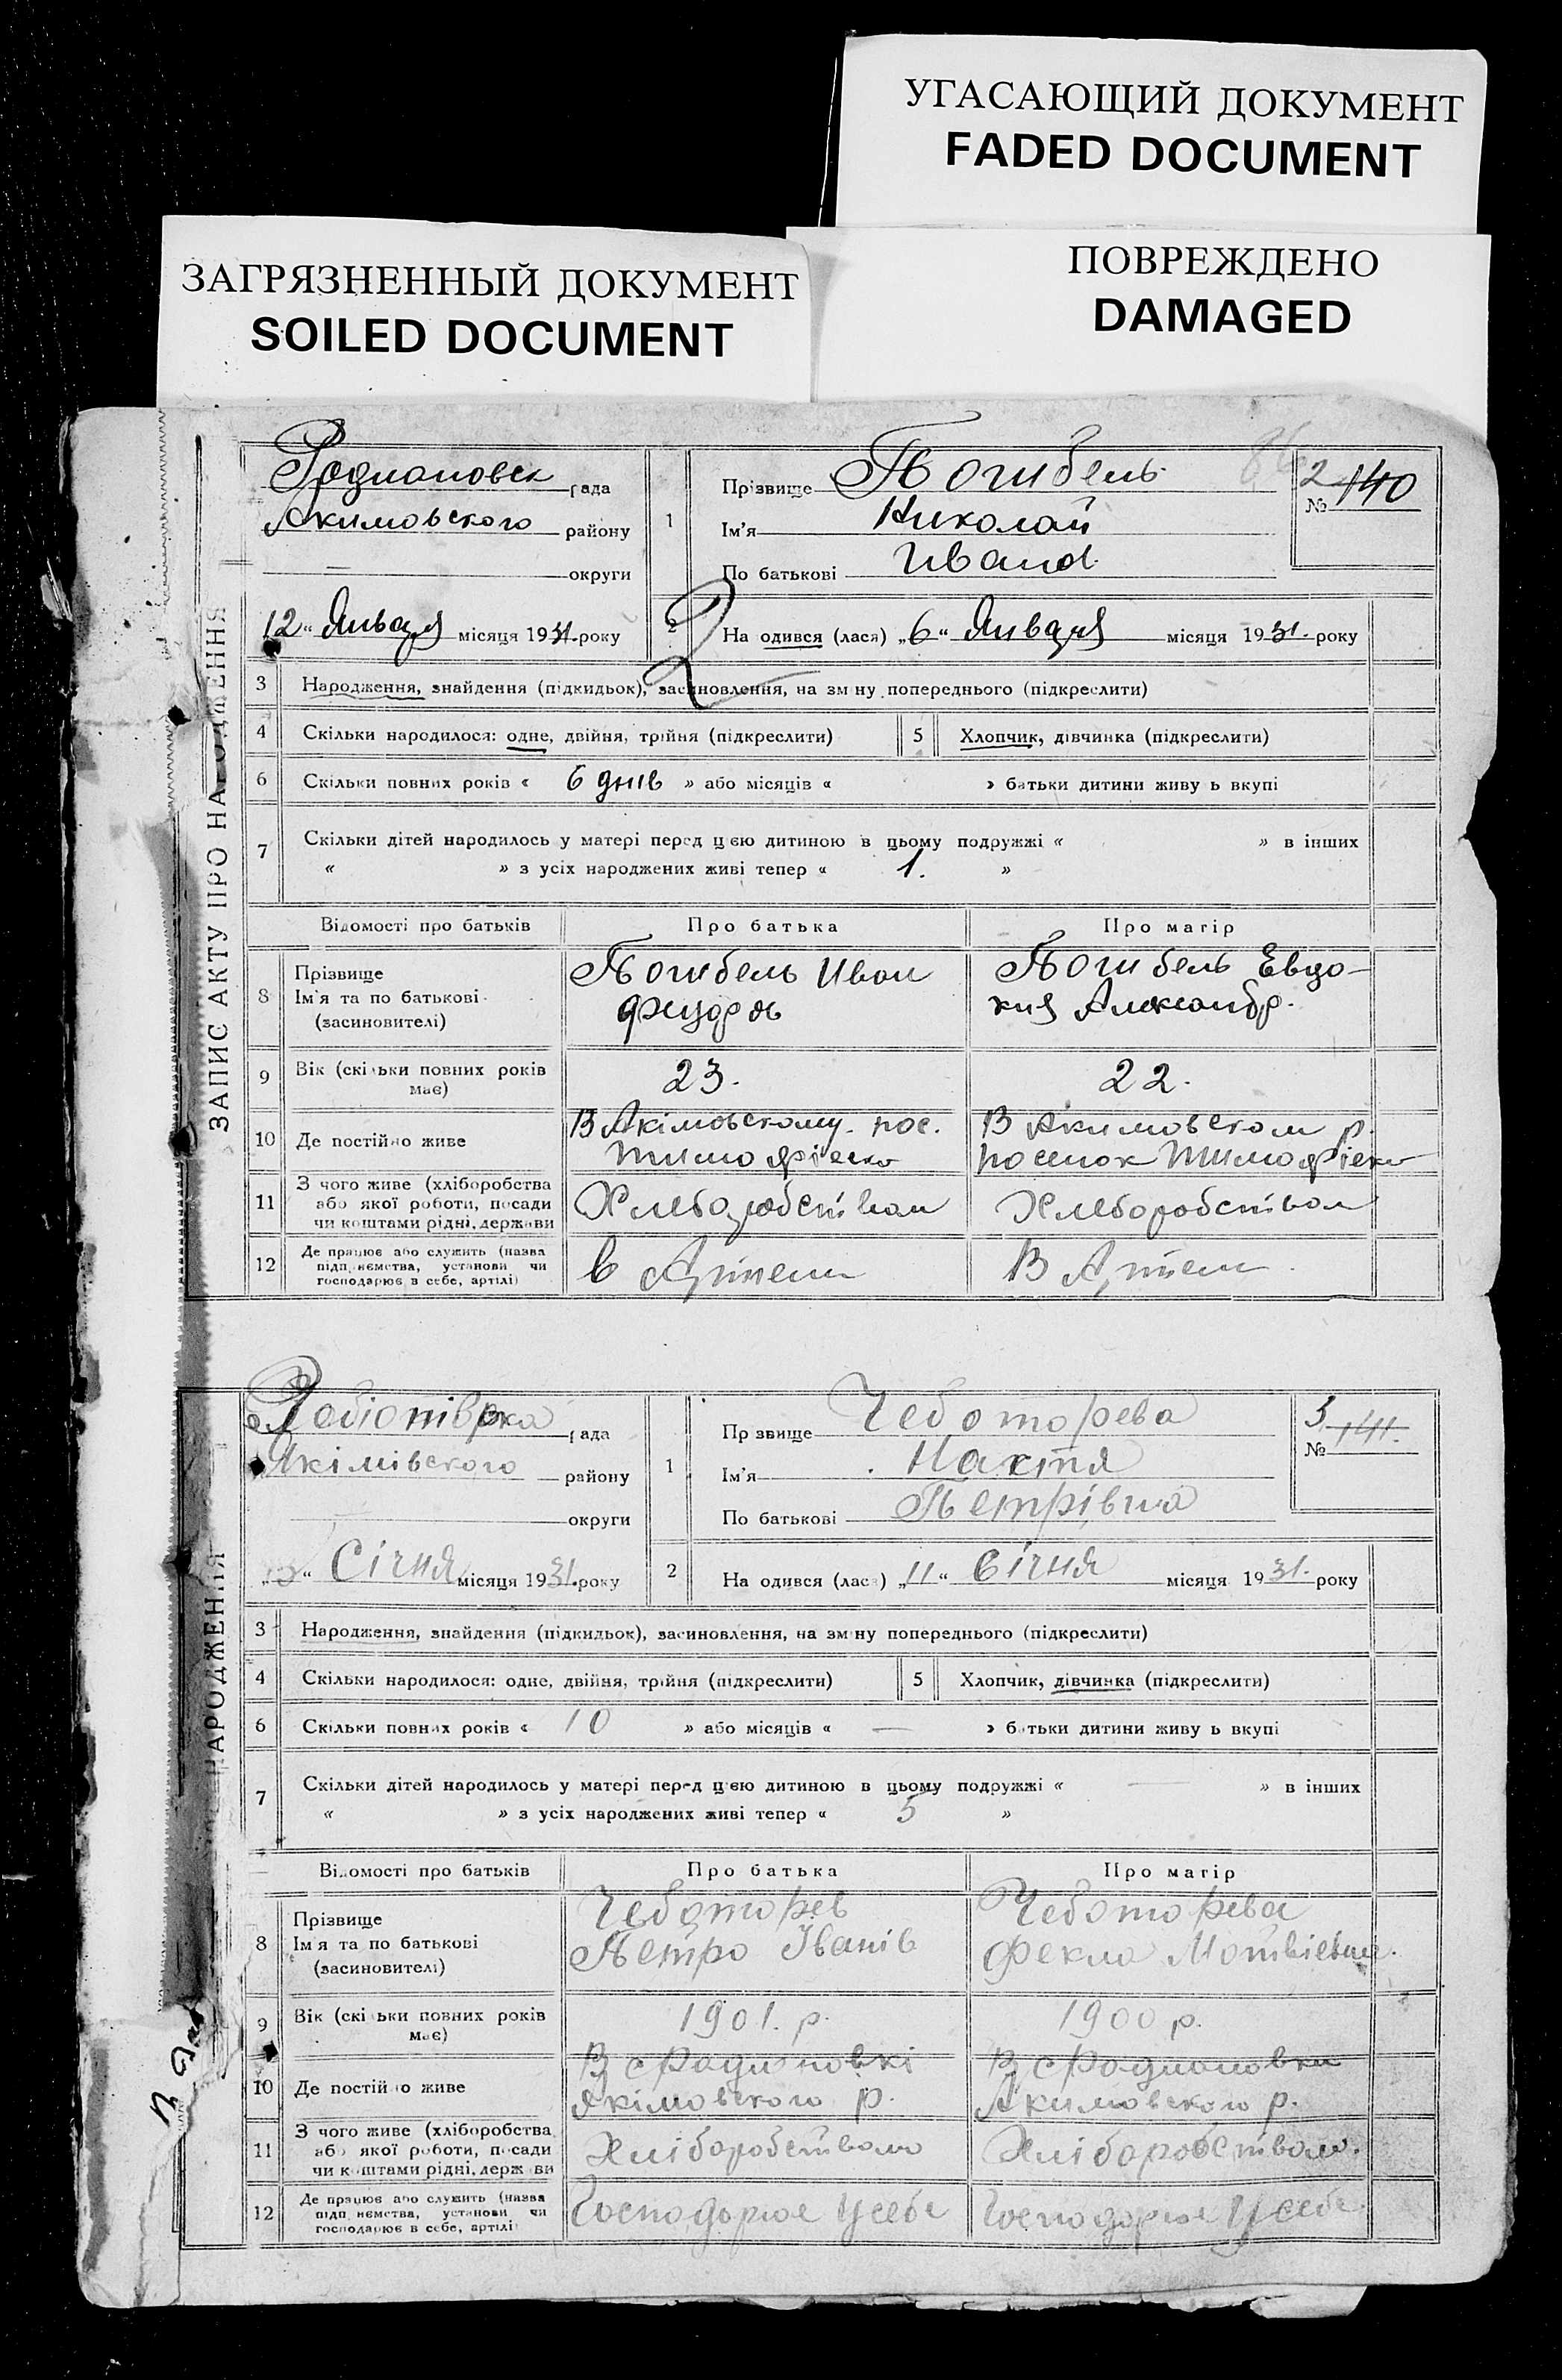 УГАСАЮЩИЙ ДОКУМЕНТ
FADED DOCUMENT
ЗАГРЯЗНЕННЫЙ ДОКУМЕНТ
SOILED DOCUMENT
ПОВРЕЖДЕНО
DAMAGED
ЗАПИС АКТУ ПРО НАРОДЖЕННЯ
Родионовск рада
Акимовского району
округи
1
Прізвище Погибель
Ім'я Николай
По батькові Иванов.
2 140
№
12 " Января місяця 1931. року
2
На одився (лася) „6" Января місяця 1931. року
3 Народження, знайдення (підкидьок), засиновлення, на зміну попереднього (підкреслити)
4 Скільки народилося: одне, двійня, трійня (підкреслити) 5 Хлопчик, дівчинка (підкреслити)
6 Скільки повних років « 6 днів » або місяців « » батьки дитини живу ь вкупі
7 Скільки дітей народилось у матері перед цією дитиною в цьому подружжі « » в інших
« » з усіх народжених живі тепер « 1. »
Відомості про батьків Про батька Про матір
8 Прізвище
Ім'я та по батькові
(засиновителі)
Погибель Иван
Федоров
Погибель Евдо-
кия Александр.
9 Вік (скільки повних років має) 23. 22.
10 Де постійно живе
В Акімовскому. пос.
Тимофіеско
В Акимовском р.
поселок Тимофіеко
11 З чого живе (хліборобства
або якої роботи, посади
чи коштами рідні, держави
Хлеборобством Хлеборобством
12 Де працює або служить (назва
підприємства, установи чи
господарює в себе, артілі)
в Артели В Артели
НАРОДЖЕННЯ
рада
Якімівського району
округи
1
Пр звище Чеботорева
Ім'я Настя
По батькові Петрівна
3 141.
№
" Січня місяця 1931. року
2
На одився (лася) „11" Січня місяця 1931. року
3 Народження, знайдення (підкидьок), засиновлення, на зміну попереднього (підкреслити)
4 Скільки народилося: одне, двійня, трійня (підкреслити) 5 Хлопчик, дівчинка (підкреслити)
6 Скільки повних років « 10 » або місяців « — » батьки дитини живу ь вкупі
7 Скільки дітей народилось у матері перед цією дитиною в цьому подружжі « — » в інших
« » з усіх народжених живі тепер « 5 »
Відомості про батьків Про батька Про матір
8 Прізвище
Ім'я та по батькові
(засиновителі)
Чеботорев
Петро Іванів
Чеботорева
Фекла Мотвіевна.
9 Вік (скільки повних років має) 1901. р. 1900 р.
10 Де постійно живе
В с Радионовкі
Якімовского р.
В с Родионовки
Акимовского р.
11 З чого живе (хліборобства
або якої роботи, посади
чи коштами рідні, держави
Хліборобством Хліборобством.
12 Де працює або служить (назва
підприємства, установи чи
господарює в себе, артілі
Господорює Усебе Господорює Усебе